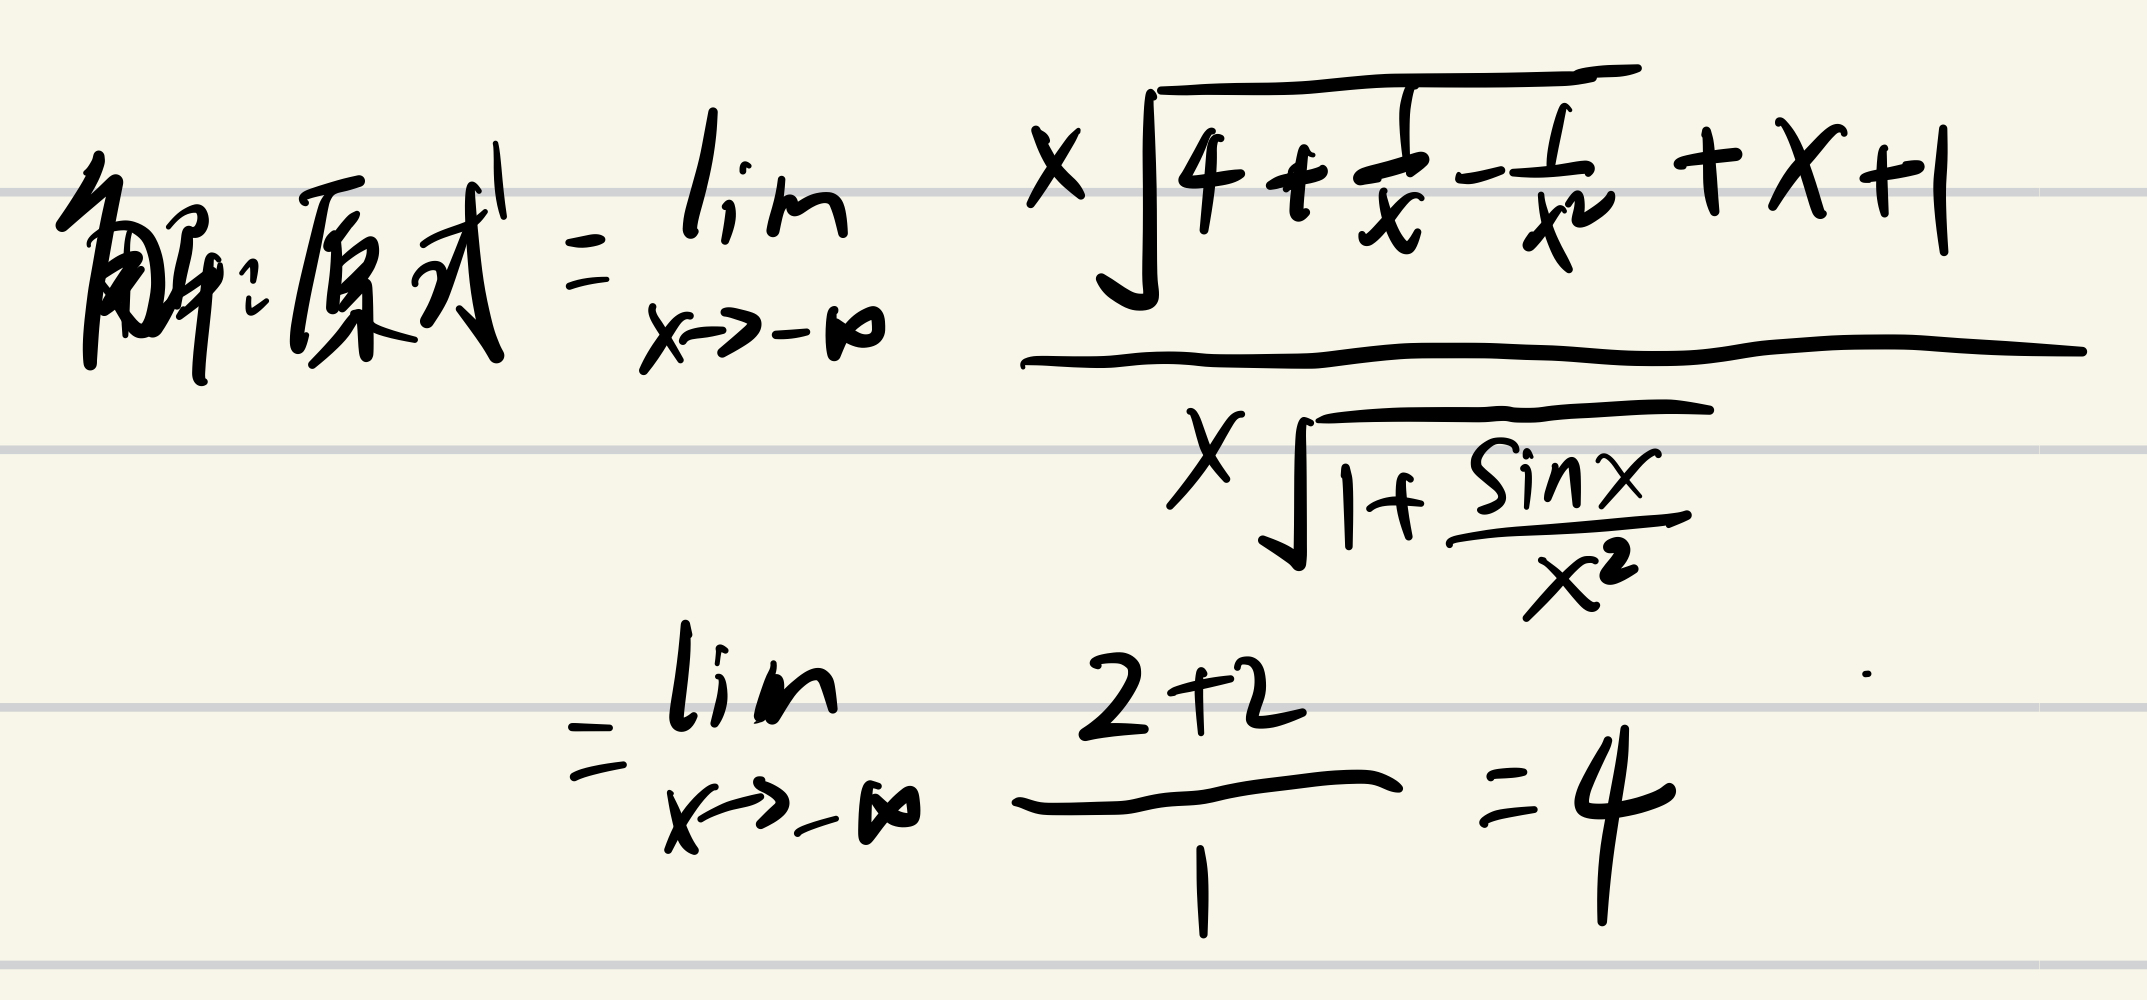 解:原式 = lim x→-∞ (x√(4+1/x-1/x²) +x+1) / (x√(1+sinx/x²))
= lim x→-∞ (2+2)/1 = 4